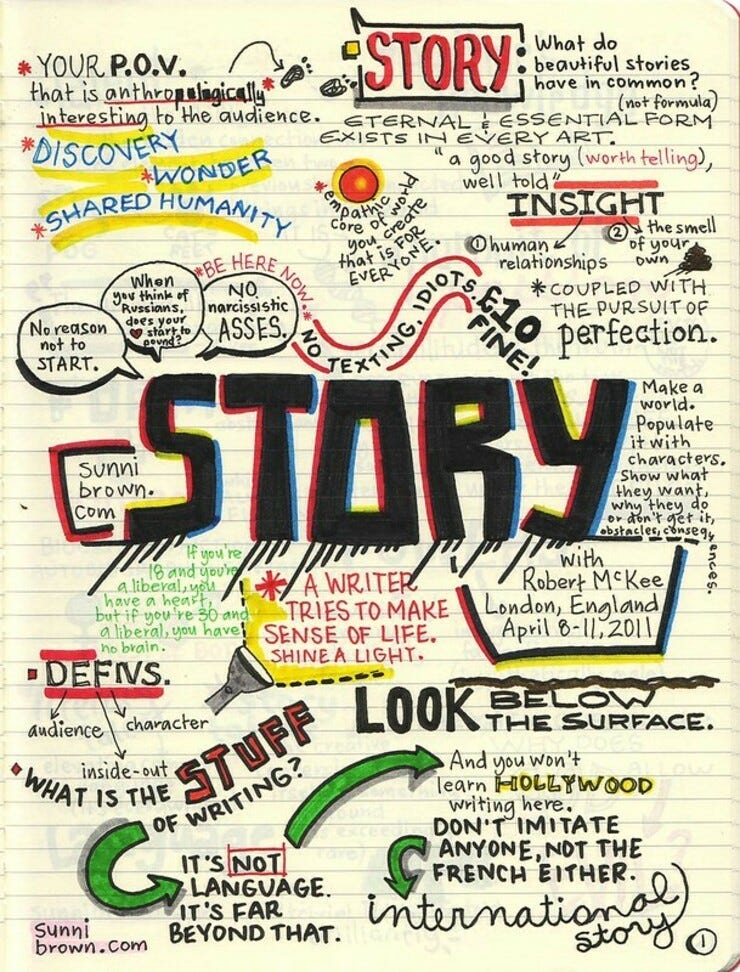 * YOUR P.O.V.
that is anthropologically *
interesting to the audience.
* DISCOVERY
* WONDER
* SHARED HUMANITY
STORY:
What do
beautiful stories
have in common?
(not formula)
ETERNAL & ESSENTIAL FORM
EXISTS IN EVERY ART.
"a good story (worth telling),
well told"
* empathic
core of world
you create
that is FOR
EVERYONE.
INSIGHT
① human
relationships
② the smell
of your
own
* COUPLED WITH
THE PURSUIT OF
perfection.
No reason
not to
START.
When
you think of
Russians,
does your
♥ start to
pound?
NO
narcissistic
ASSES.
*BE HERE NOW.*
NO TEXTING, IDIOTS. £10
FINE!
STORY
Sunni
brown.
com
Make a
world.
Populate
it with
characters.
Show what
they want,
why they do
or don't get it,
obstacles, consequences.
with
Robert McKee
London, England
April 8-11, 2011
If you're
18 and you're
a liberal, you
have a heart,
but if you're 30 and
a liberal, you have
no brain.
* A WRITER
TRIES TO MAKE
SENSE OF LIFE.
SHINE A LIGHT.
DEFNS.
audience
character
inside-out
LOOK BELOW
THE SURFACE.
WHAT IS THE STUFF
OF WRITING?
IT'S NOT
LANGUAGE.
IT'S FAR
BEYOND THAT.
And you won't
learn HOLLYWOOD
writing here.
DON'T IMITATE
ANYONE, NOT THE
FRENCH EITHER.
international
story
①
Sunni
brown.com